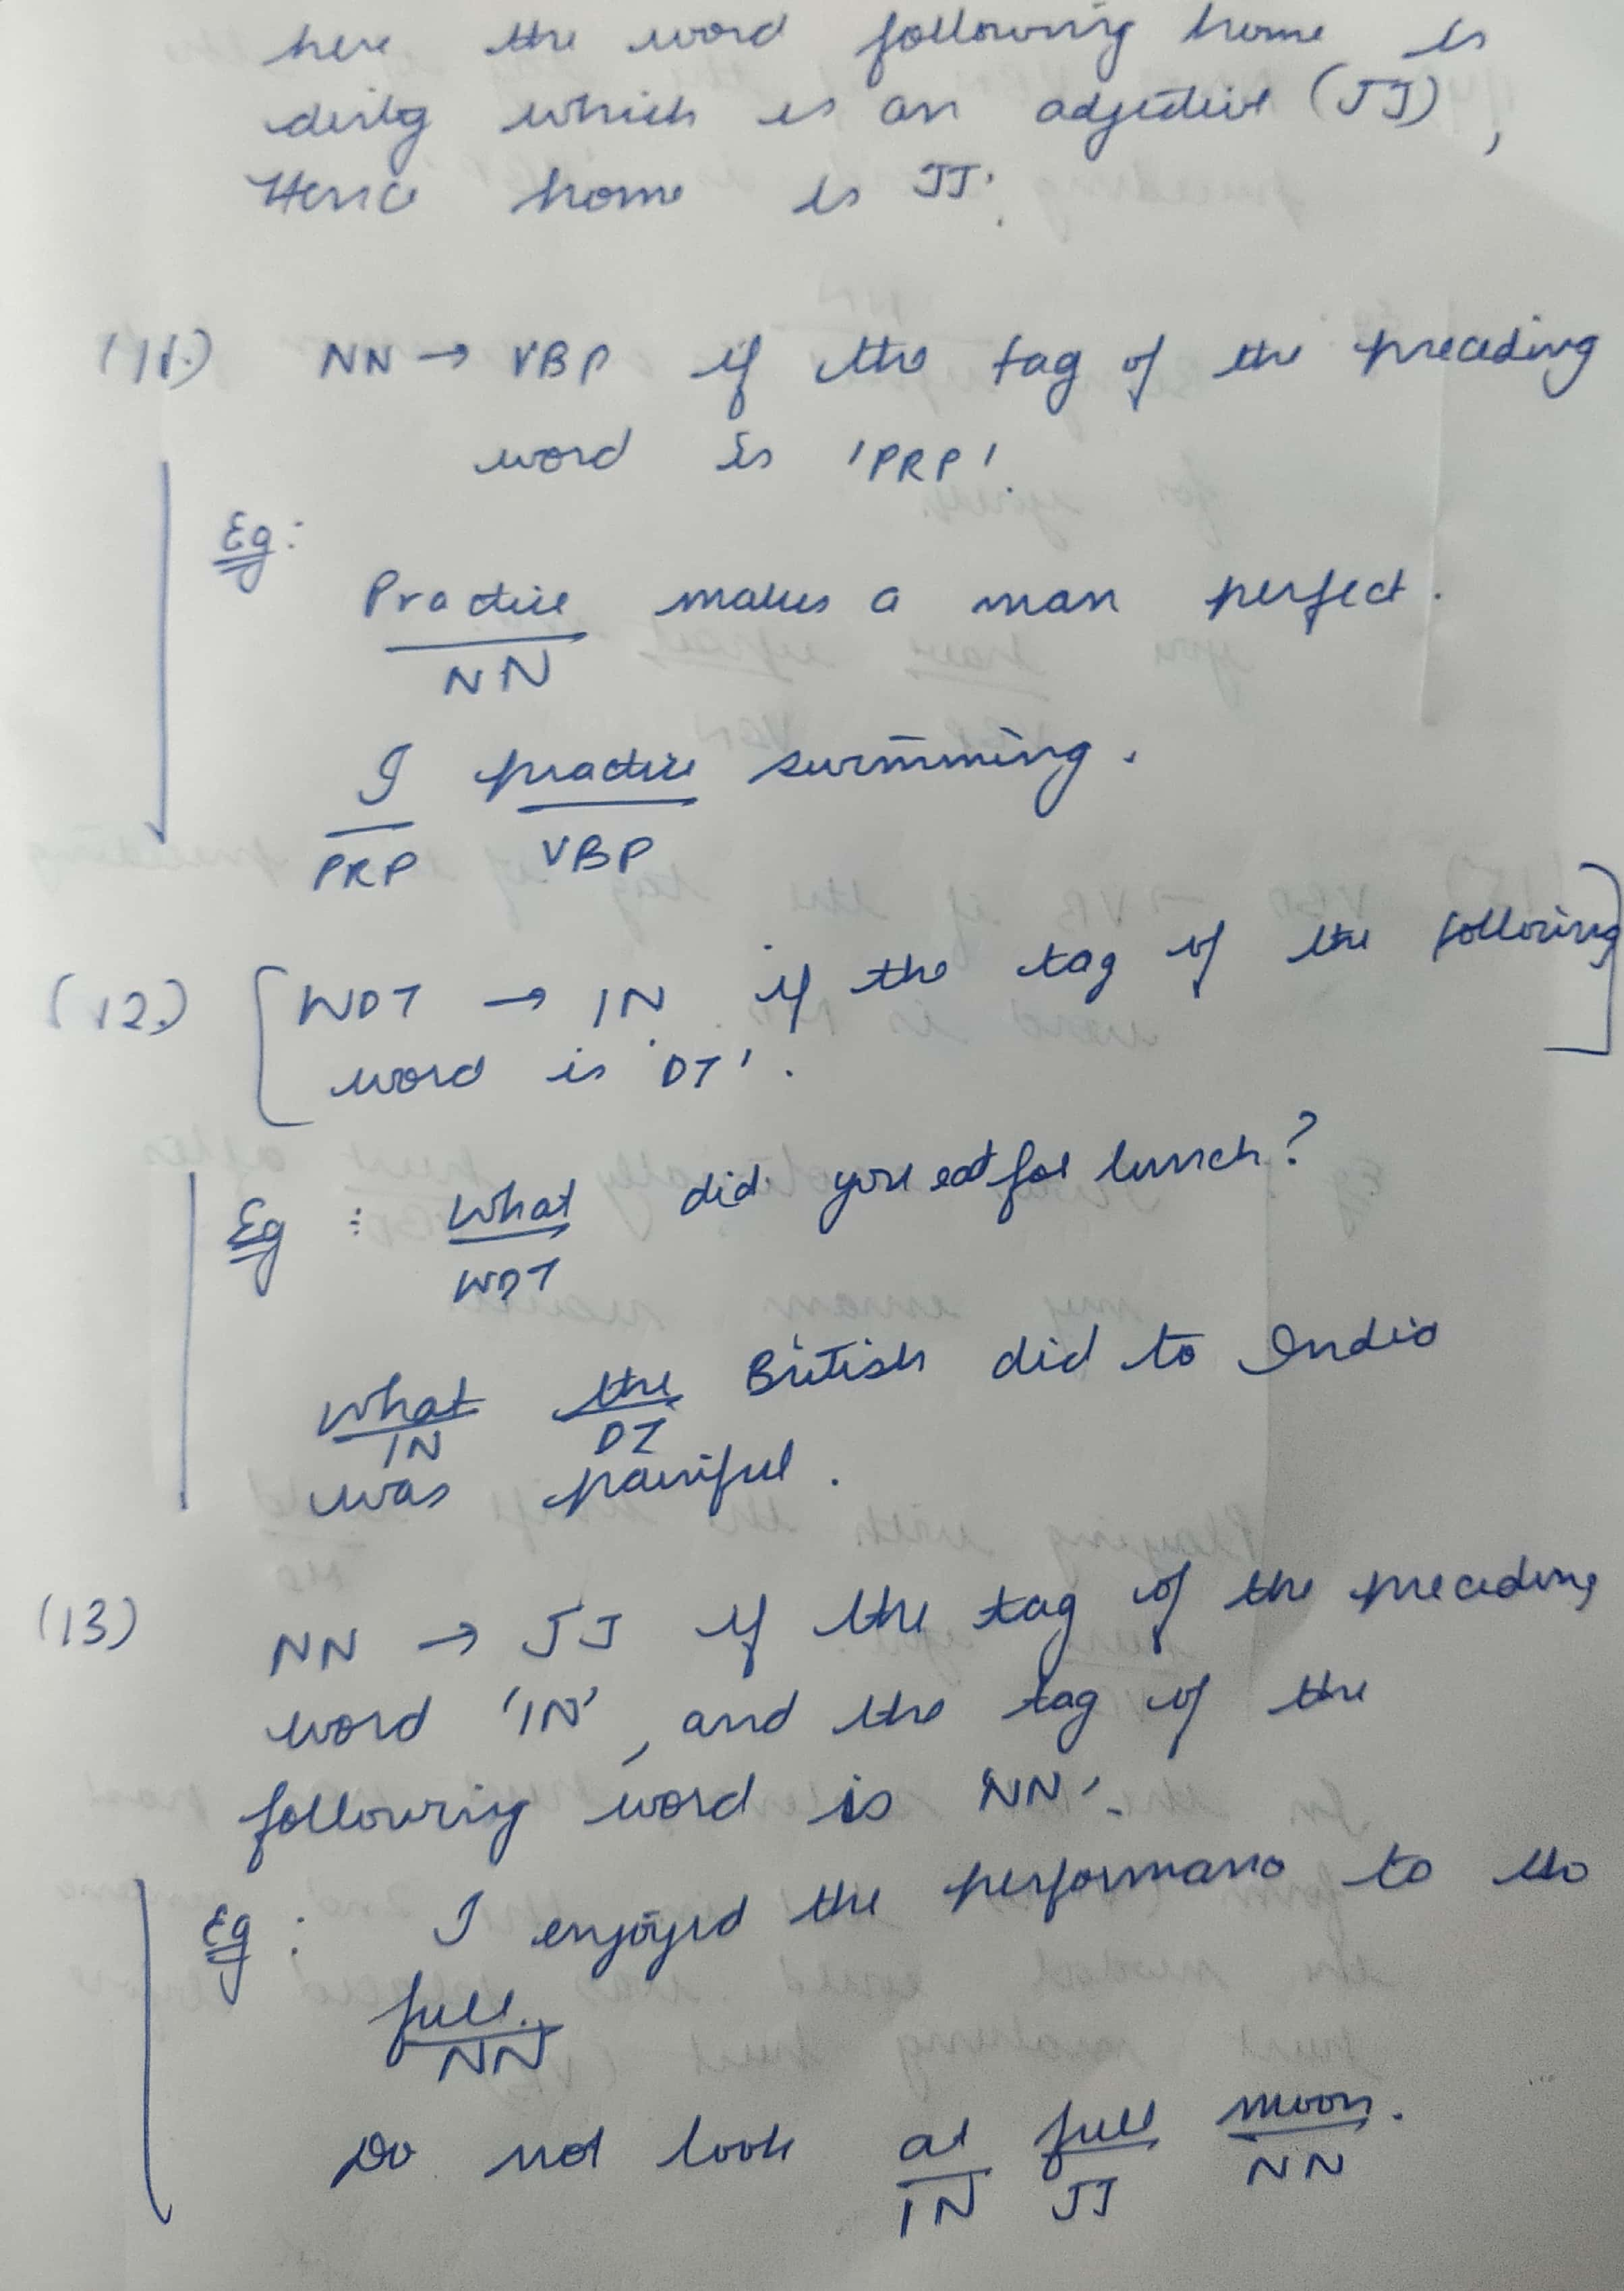 here the word following home is
dirty which is an adjective (JJ),
Hence home is JJ.
(11.) NN → VBP if the tag of the preceding
word is 'PRP'.
Eg:
Practice makes a man perfect.
NN
I practice swimming.
PRP VBP
(12.) [WDT → IN if the tag of the following
word is 'DT'.]
Eg : What did you eat for lunch?
WDT
What the British did to India
IN DT
was painful.
(13) NN → JJ if the tag of the preceding
word 'IN', and the tag of the
following word is 'NN'.
Eg : I enjoyed the performance to the
full.
NN
Do not look at full moon.
IN JJ NN